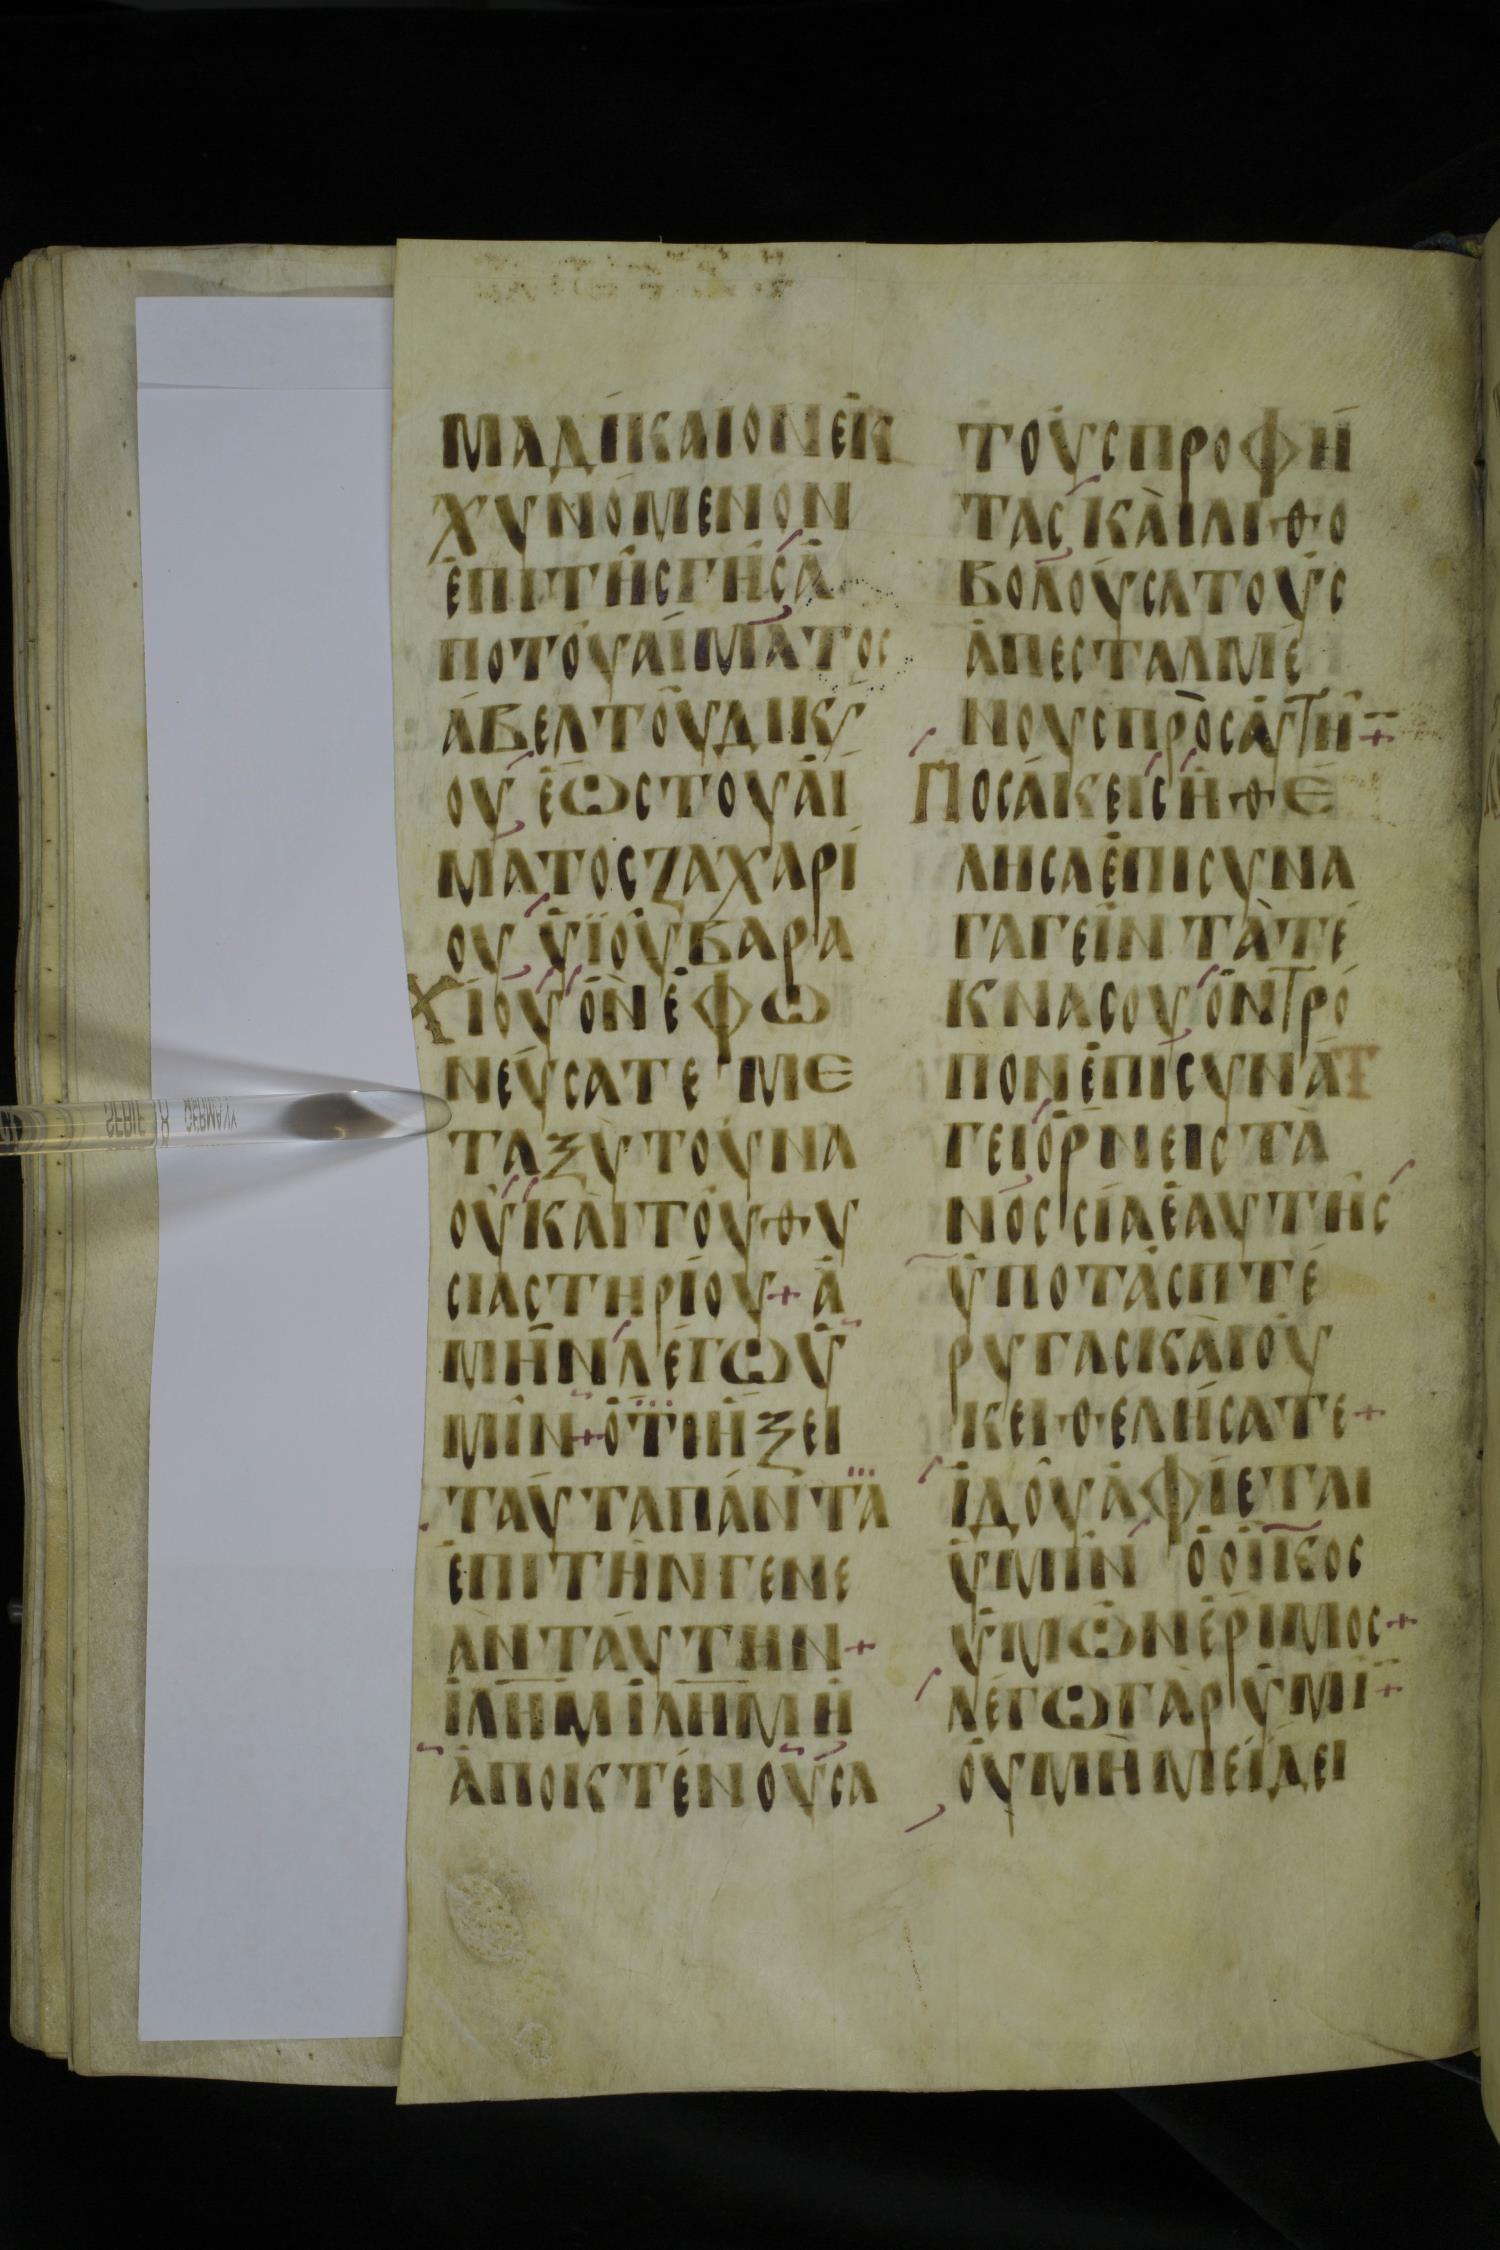 ΜΑΔΊΚΑΙΟΝΕΚ
ΧΥΝΌΜΕΝΟΝ
ἘΠΙΤΗ͂ΣΓΗ͂ΣἈ
ΠΟΤΟΥ͂ΑΊΜΑΤΟΣ
ἌΒΕΛΤΟΥ͂ΔΙΚ
ΟΥ ἝΩΣΤΟΥΑἽ
ΜΑΤΟΣΖΑΧΑΡΊ
ΟΥ ΥἹΟΥ͂ΒΑΡΑ
ΧΊΟΥ ὋΝἘΦΩ
ΝΕΎΣΑΤΕ ΜΕ
ΤΑΞῪΤΟΥ͂ΝΑ
ΟΥ͂ΚΑῚΤΟΥ͂ΘΥ
ΣΙΑΣΤΗΡΊΟΥ+Ἀ
ΜῊΝΛΈΓΩὙ
ΜΙ͂Ν+ὍΤΙἭΞΕΙ
ΤΑΥ͂ΤΑΠΆΝΤΑ
ἘΠΙΤῊΝΓΕΝΕ
ᾺΝΤΑΎΤΗΝ+
ἸΛΗΜἸΛΗΜἩ
ἈΠΟΚΤΈΝΟΥΣΑ
ΤΟῪΣΠΡΟΦΉ
ΤΑΣΚΑῚΛΙΘΟ
ΒΟΛΟΥ͂ΣΑΤΟῪΣ
ἈΠΕΣΤΑΛΜΈ
ΝΟΥΣΠΡΟΣΑΥΤΉ+
ΠΟΣΆΚΕΙΣἨΘΈ
ΛΗΣΑἘΠΙΣΥΝΑ
ΓΑΓΕΙ͂Ν ΤᾺΤΈ
ΚΝΑΣΟΥὋΝΤΡΌ
ΠΟΝἘΠΙΣΥΝΆ
ΓΕΙὌΡΝΕΙΣΤᾺ
ΝΟΣΣΊΑἙΑΥΤΗ͂Σ
ὙΠΟΤᾺΣΠΤΈ
ΡΥΓΑΣΚΑῚΟΥ̓
ΚΕΙΘΕΛΉΣΑΤΕ+
ἸΔΟΥ͂ἈΦΊΕΤΑΙ
ὙΜΙ͂Ν ὉΟἾΚΟΣ
ὙΜΩ͂ΝἘΡΙΜΟΣ+
ΛΈΓΩΓᾺΡὙΜΙ+
ΟΥ̓ΜῊΜΕΊΔΕΙ